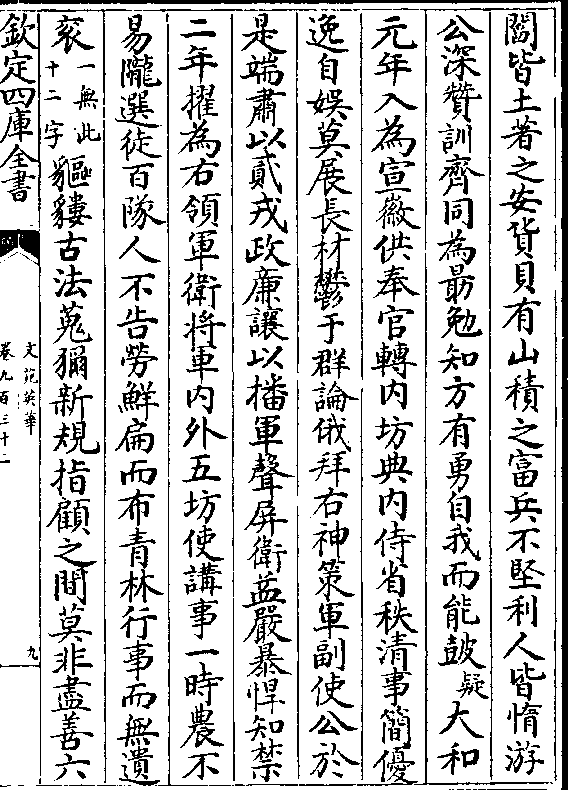 闠皆土著之安貨貝有山積之富兵不堅利人皆惰游
公深贊訓齊同為最勉知方有勇自我而能皷疑大和
元年入為宣徽供奉官轉内坊典内侍省秩清事簡優
逸自娯莫展長材鬱于群論俄拜右神策軍副使公於
是端肅以貳戎政廉讓以播軍聲屏衛益嚴暴悍知禁
二年擢為右領軍衛將軍内外五坊使講事一時農不
易隴選徒百隊人不告勞鮮扁而布青林行事而無遺
衮一無此十二字貙貗古法蒐獮新規指顧之間莫非盡善六
欽定四庫全書
文苑英華
卷九百三十二
九